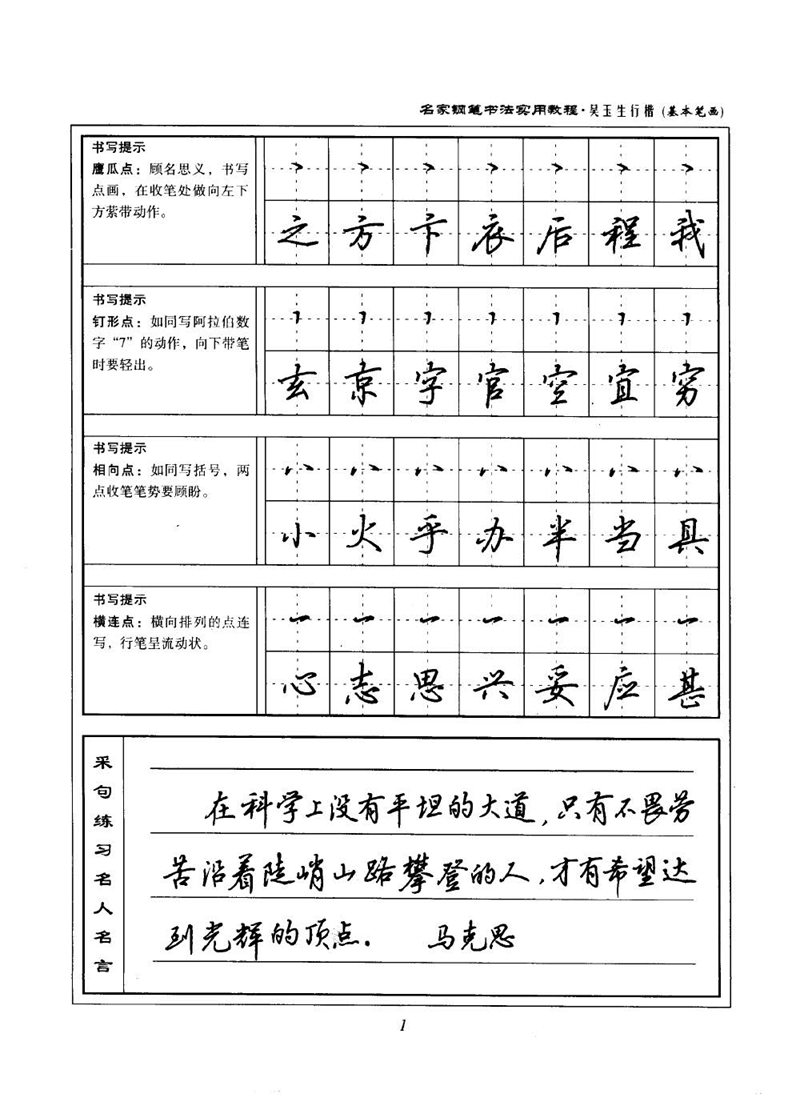 名家钢笔书法实用教程·吴玉生行楷(基本笔画)
书写提示
鹰瓜点：顾名思义，书写
点画，在收笔处做向左下
方萦带动作。
之方卞衣后程我
书写提示
钉形点：如同写阿拉伯数
字“7”的动作，向下带笔
时要轻出。
玄京字官空宜穷
书写提示
相向点：如同写括号，两
点收笔笔势要顾盼。
小火乎办半当具
书写提示
横连点：横向排列的点连
写，行笔呈流动状。
心志思兴妥应甚
采句练习名人名言
在科学上没有平坦的大道，只有不畏劳
苦沿着陡峭山路攀登的人，才有希望达
到光辉的顶点. 马克思
1